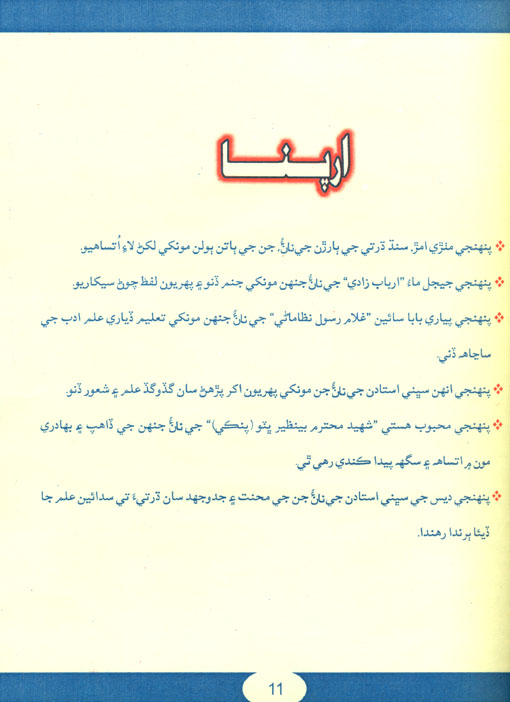 ارپنا
❖ پنهنجي مٺڙي امڙ، سنڌ ڌرتي جي ٻارڙن جي نانءُ، جن جي ٻاتن ٻولن مونکي لکڻ لاءِ اُتساهيو.
❖ پنهنجي جيجل ماءُ ”ارباب زادي“ جي نانءُ جنهن مونکي جنم ڏنو ۽ پهريون لفظ چوڻ سيکاريو.
❖ پنهنجي پياري بابا سائين ”غلام رسول نظاماڻي“ جي نانءُ جنهن مونکي تعليم ڏياري علم ادب جي
ساڃاهه ڏني.
❖ پنهنجي انهن سڀني استادن جي نانءُ جن مونکي پهريون اکر پڙهڻ سان گڏوگڏ علم ۽ شعور ڏنو.
❖ پنهنجي محبوب هستي ”شهيد محترم بينظير ڀٽو (پنڪي)“ جي نانءُ جنهن جي ڏاهپ ۽ بهادري
مون ۾ اتساهه ۽ سگهه پيدا ڪندي رهي ٿي.
❖ پنهنجي ديس جي سڀني استادن جي نانءُ جن جي محنت ۽ جدوجهد سان ڌرتيءَ تي سدائين علم جا
ڏيئا ٻرندا رهندا.
11